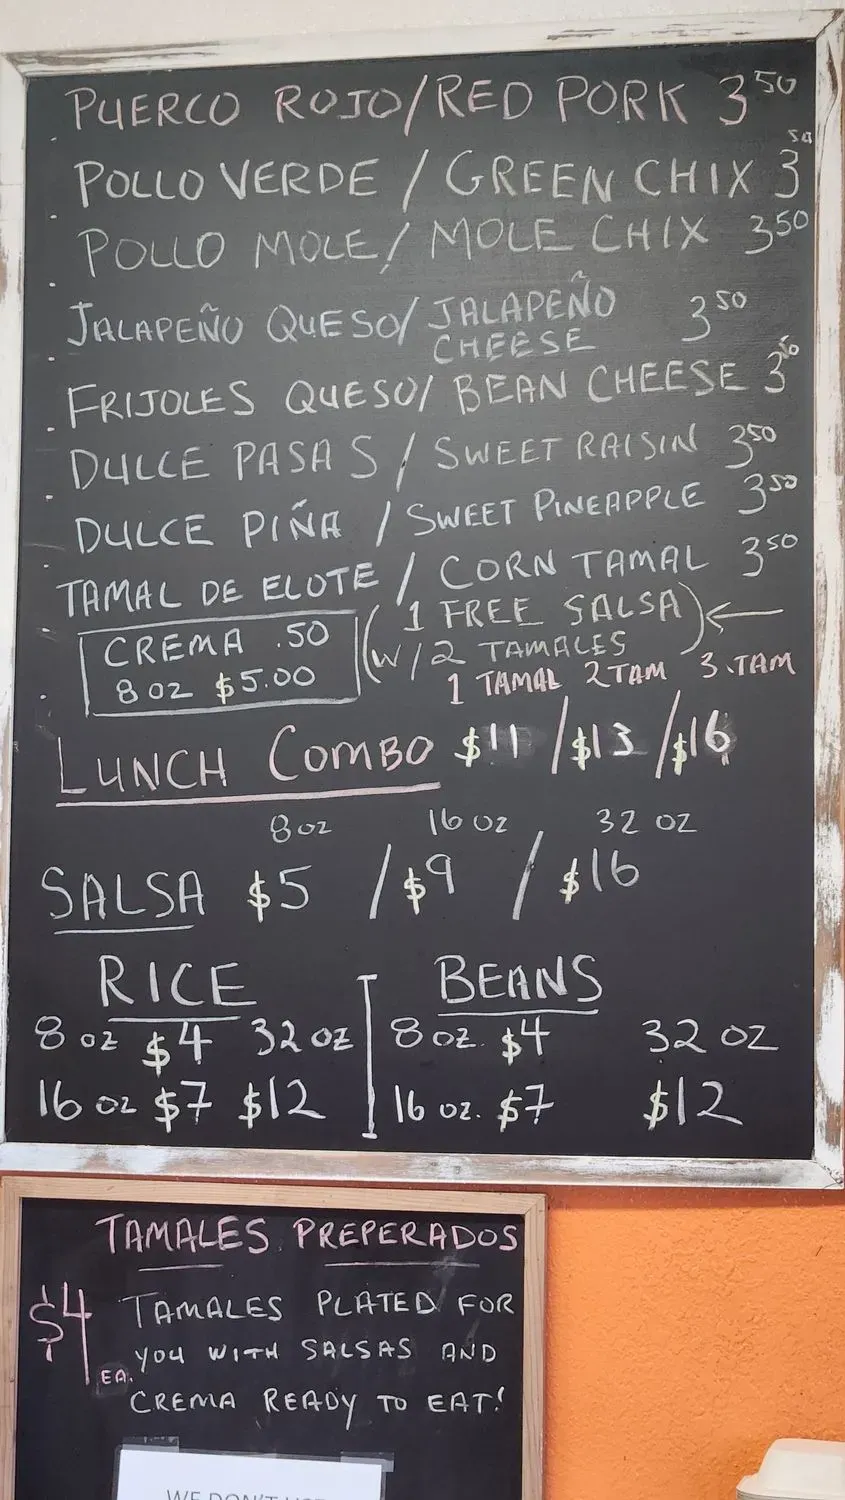 PUERCO ROJO/RED PORK 3 50
POLLO VERDE / GREEN CHIX 3 50
POLLO MOLE / MOLE CHIX 3 50
JALAPEÑO QUESO/ JALAPEÑO CHEESE 3 50
FRIJOLES QUESO/ BEAN CHEESE 3 50
DULCE PASAS / SWEET RAISIN 3 50
DULCE PIÑA / SWEET PINEAPPLE 3 50
TAMAL DE ELOTE / CORN TAMAL 3 50
CREMA .50
8 OZ $5.00
(1 FREE SALSA
W/2 TAMALES) ←
1 TAMAL 2 TAM 3 TAM
LUNCH COMBO $11 / $13 / $16
8 OZ 16 OZ 32 OZ
SALSA $5 / $9 / $16
RICE
8 OZ $4 32 OZ
16 OZ $7 $12
BEANS
8 OZ. $4 32 OZ
16 OZ. $7 $12
TAMALES PREPERADOS
$4 EA.
TAMALES PLATED FOR
YOU WITH SALSAS AND
CREMA READY TO EAT!
WE DON'T